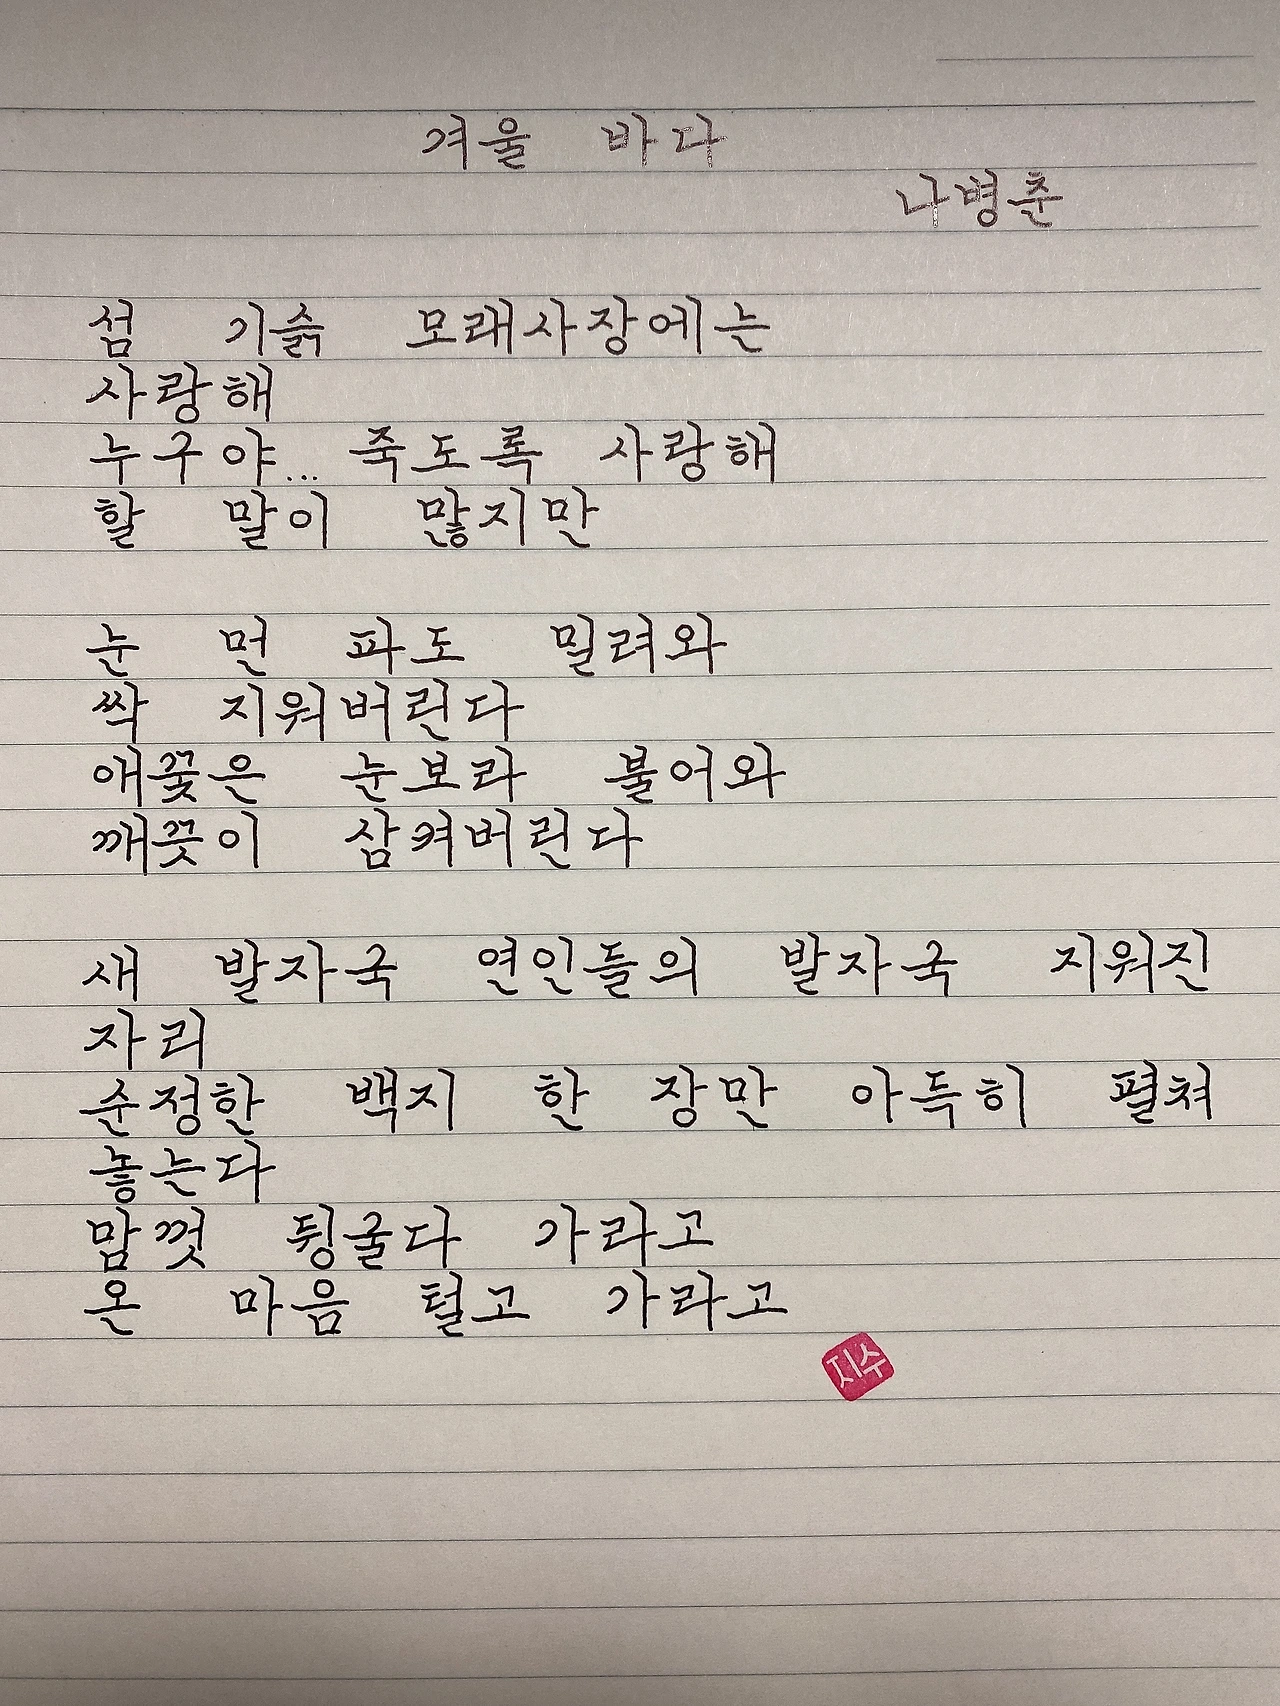 겨울 바다
나병춘
섬 기슭 모래사장에는
사랑해
누구야... 죽도록 사랑해
할 말이 많지만
눈 먼 파도 밀려와
싹 지워버린다
애꿎은 눈보라 불어와
깨끗이 삼켜버린다
새 발자국 연인들의 발자국 지워진
자리
순정한 백지 한 장만 아득히 펼쳐
놓는다
맘껏 뒹굴다 가라고
온 마음 털고 가라고
지수